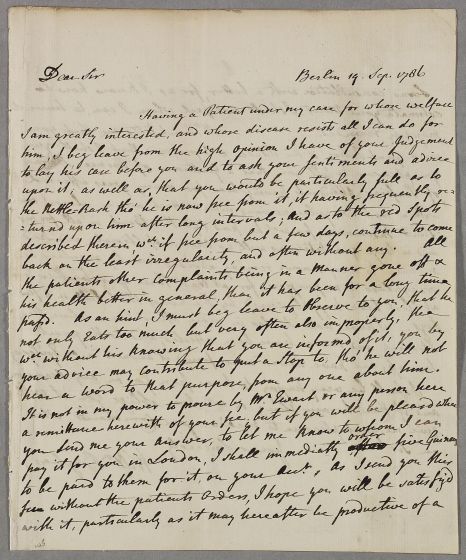 Dear Sir Berlin 19. Sep. 1786
Having a Patient under my care for whose wellfare
I am greatly interested, and whose disease resists all I can do for
him; I beg leave from the high opinion I have of your Judgement
to lay his case before you and to ask your sentiments and advice
upon it; as well as, that you would be particularly full as to
the Nettle-Rash tho' he is now free from it, it having frequently re=
=turnd upon him after long intervals, And as to the red Spots
described therein wch. if free from but a few days, continue to come
back on the least irregularity, and often without any. All
the patients other complaints being in a manner gone off &
his health better in general, than it has been for a long time
past. As an hint I must beg leave to Observe to you, that he
not only Eats too much but very often also improperly, the
wch. without his knowing that you are informd of it, you by
your advice may contribute to put a Stop to, tho' he will not
hear a word to that purpose, from any one about him.
It is not in my power to procure by Mr. Ewart or any person here
a remittance herewith of your fee, but if you will be pleased when
you send me your answer, to let me know to whom I can
pay it for you in London, I shall immediatly order five Guineas
to be paid to them for it, on your Acct. As I send you this
without the patients Orders, I hope you will be satisfy'd
with it, particularly as it may hereafter be productive of a